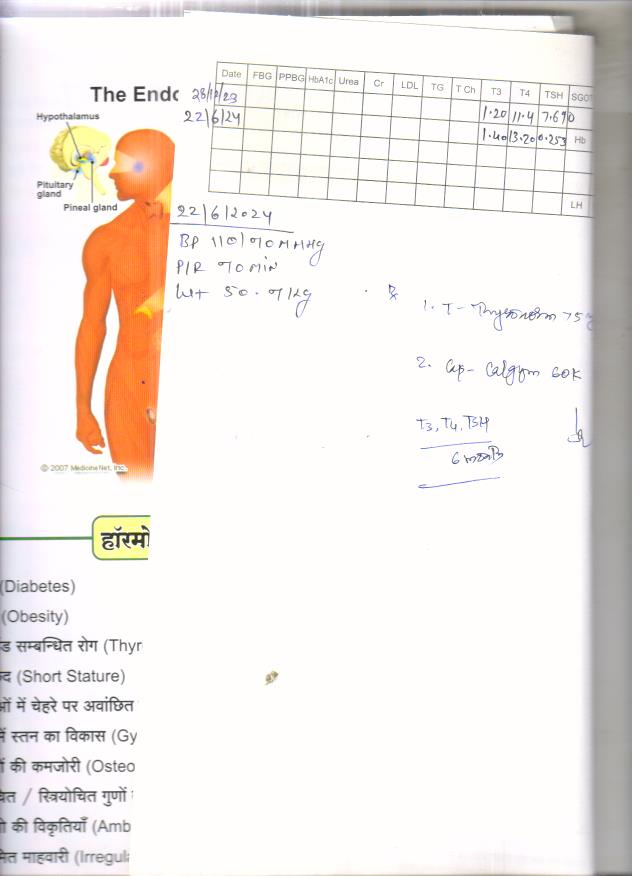 The Endo
Hypothalamus
Pituitary
gland
Pineal gland
© 2007 MedicineNet, Inc.
हॉरमो
(Diabetes)
(Obesity)
ड सम्बन्धित रोग (Thyr
द (Short Stature)
ओं में चेहरे पर अवांछित
में स्तन का विकास (Gy
ों की कमजोरी (Osteo
चित / स्त्रियोचित गुणों
ो की विकृतियाँ (Amb
मित माहवारी (Irregula
Date FBG PPBG HbA1c Urea Cr LDL TG T Ch T3 T4 TSH SGOT
28/12/23 1.20 11.4 7.690
22/6/24 1.40 13.20 0.253 Hb
LH
22/6/2024
BP 110/70 MMHg
P/R 70 MIN
Wt 50.7 Kg
Rx
1. T- Thyronorm 75
2. Cap- 60K
T3, T4, TSH